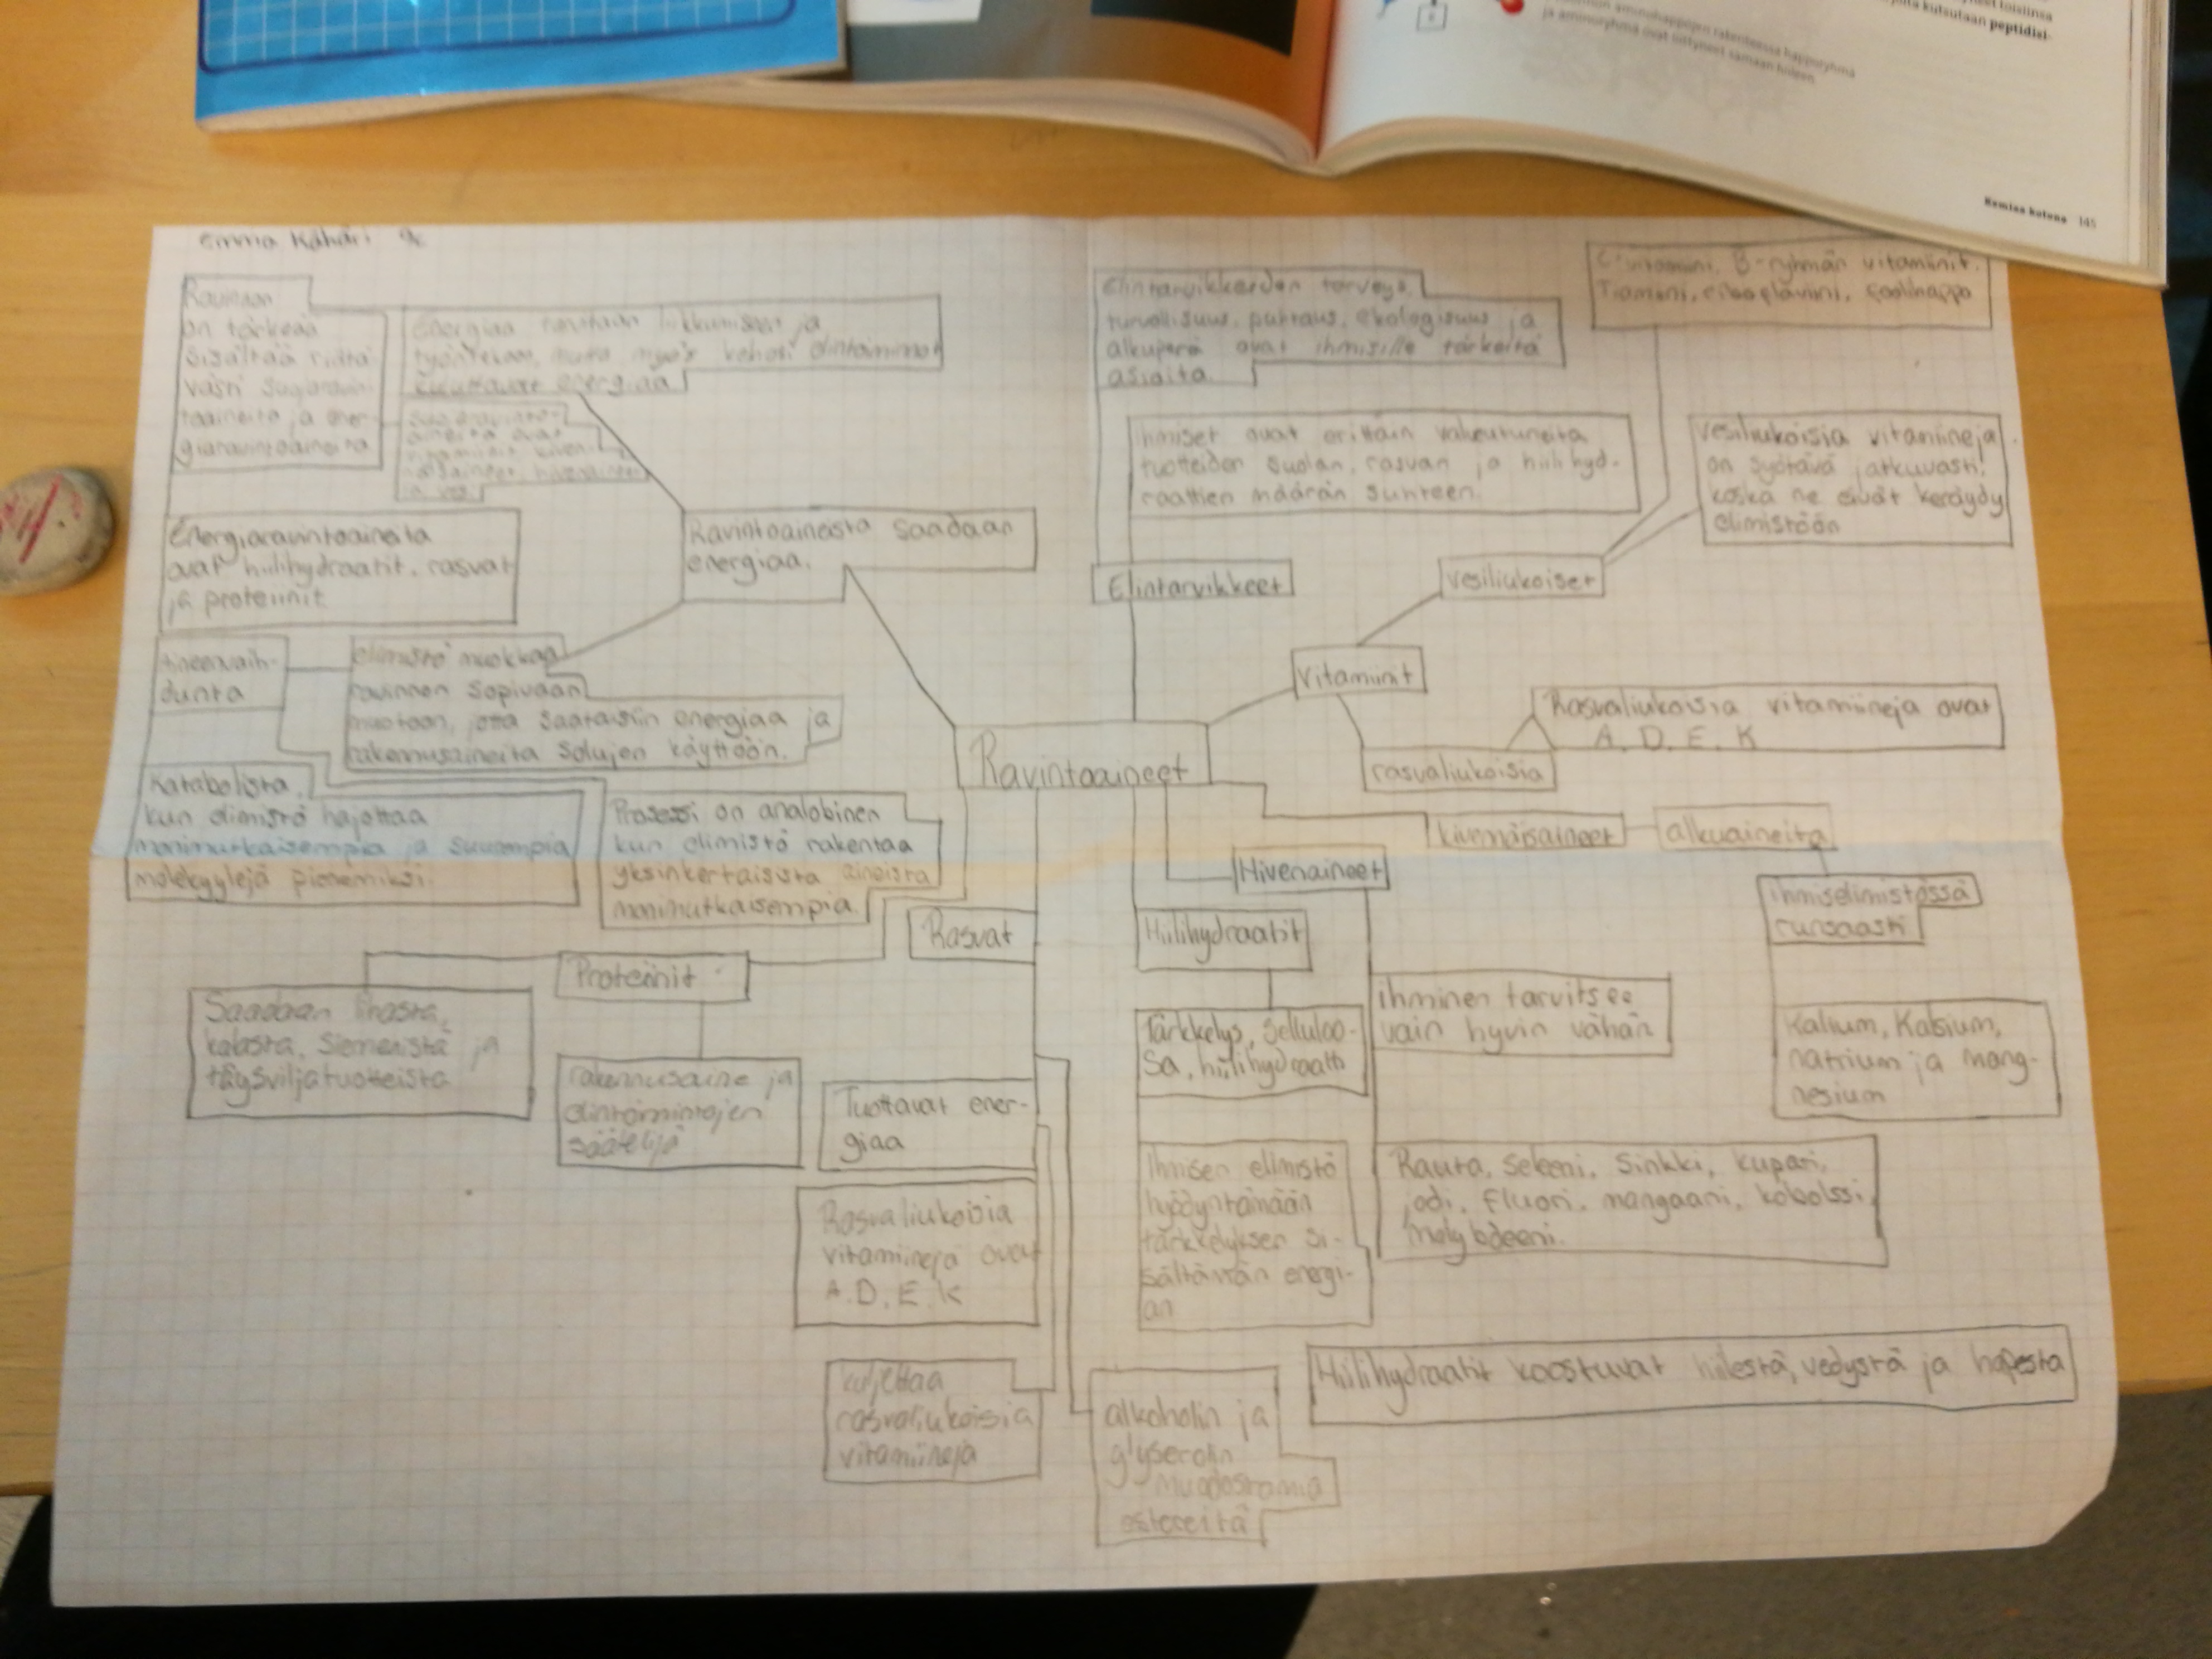 kutsutaan peptidisi-
aminohappojen rakenteessa happoryhmä
ja aminoryhmä ovat liittyneet samaan hiileen
Kemiaa kotona 145
Emma Kähäri 9c
Ravinnon
on tärkeää
sisältää riittä-
västi suojaravin-
toaineita ja ener-
giaravintoaineita
Energiaa tarvitaan liikkumiseen ja
työntekoon, mutta myös kehosi elintoiminnot
kuluttavat energiaa
suojaravinto-
aineita ovat
vitamiinit, kiven-
näisaineet, hivenaineet
ja vesi
Energiaravintoaineita
ovat hiilihydraatit, rasvat
ja proteiinit
Ravintoaineista saadaan
energiaa.
Aineenvaih-
dunta
elimistö muokkaa
ravinnon sopivaan
muotoon, jotta saataisiin energiaa ja
rakennusaineita solujen käyttöön.
Katabolista,
kun elimistö hajottaa
monimutkaisempia ja suurempia
molekyylejä pienemiksi.
Prosessi on analobinen
kun elimistö rakentaa
yksinkertaisista aineista
monimutkaisempia.
Elintarvikkeiden terveys,
turvallisuus, puhtaus, ekologisuus ja
alkuperä ovat ihmisille tärkeitä
asioita.
Ihmiset ovat erittäin valveutuneita
tuotteiden suolan, rasvan ja hiilihyd-
raattien määrän suhteen.
Elintarvikkeet
C-vitamiini, B-ryhmän vitamiinit.
Tiamiini, riboflaviini, foolihappo
Vesiliukoisia vitamiineja
on syötävä jatkuvasti,
koska ne eivät keräydy
elimistöön
vesiliukoiset
Vitamiinit
Rasvaliukoisia vitamiineja ovat
A, D, E, K
rasvaliukoisia
Ravintoaineet
kivennäisaineet
alkuaineita
ihmiselimistössä
runsaasti
Kalium, Kalsium,
natrium ja mang-
nesium
Hivenaineet
ihminen tarvitsee
vain hyvin vähän
Rauta, Seleeni, Sinkki, kupari,
jodi, fluori, mangaani, kobolssi,
molybdeeni.
Hiilihydraatit
Tärkkelys, selluloo-
sa, hiilihydraatti
Ihmisen elimistö
hyödyntämään
tärkkelyksen si-
sältämän energi-
an
Hiilihydraatit koostuvat hiilestä, vedystä ja hapesta
Rasvat
Proteiinit
Saadaan lihasta,
kalasta, Siemenistä ja
täysviljatuotteista
rakennusaine ja
elintoimintojen
säätelijä
Tuottavat ener-
giaa
Rasvaliukoisia
vitamiineja ovat
A. D. E. K
kuljettaa
rasvaliukoisia
vitamiineja
alkoholin ja
glyserolin
muodostamia
estereitä